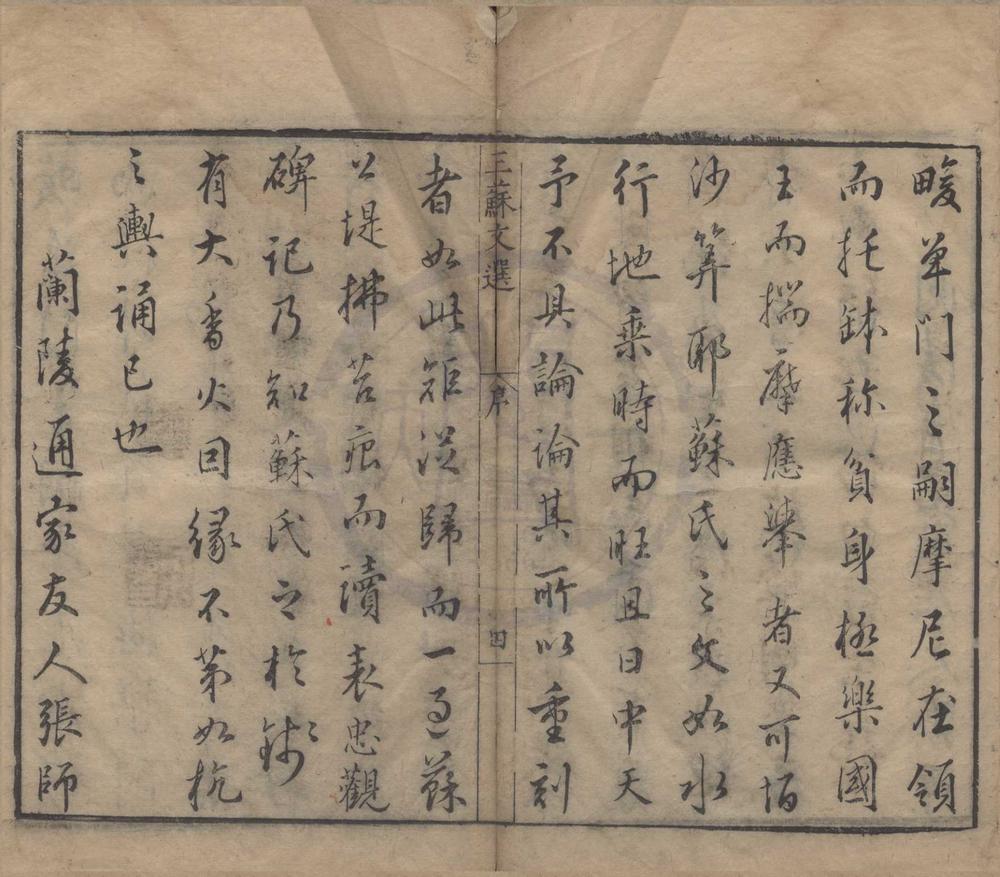 畯单门之嗣摩尼在領
而托鉢称貧身極樂國
王而揣摩應舉者又可恒
沙筭耶蘇氏之文如水
行地乗時而旺且日中天
予不具論論其所以重刻
三蘇文選
序
四
者如此矩從歸而一過蘇
公堤拂苔痕而讀表忠觀
碑記乃知蘇氏之於錢
有大香火因緣不第如杭
之輿誦已也
蘭陵通家友人張師